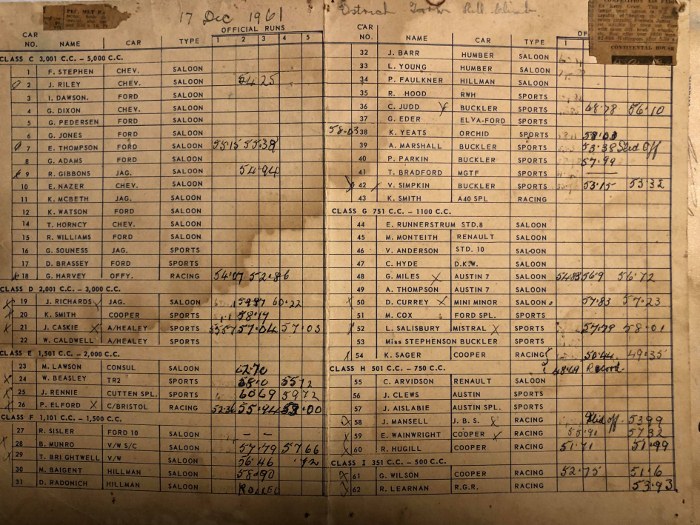 17 Dec 1961
OFFICIAL RUNS
CAR NO. NAME CAR TYPE 1 2 3 4 5
CLASS C 3,001 C.C. – 5,000 C.C.
1 F. STEPHEN CHEV. SALOON
2 J. RILEY CHEV. SALOON 54.25
3 I. DAWSON. FORD SALOON
4 G. DIXON CHEV. SALOON
5 G. PEDERSEN FORD SALOON
6 G. JONES FORD SALOON
7 E. THOMPSON FORD SALOON 55.15 55.38
8 G. ADAMS FORD SALOON
9 R. GIBBONS JAG. SALOON 54.94
10 E. NAZER CHEV. SALOON
11 K. McBETH JAG. SALOON
12 K. WATSON FORD SALOON
14 T. HORNCY CHEV. SALOON
15 R. WILLIAMS FORD SALOON
16 G. SOUNESS JAG. SPORTS
17 D. BRASSEY FORD SPORTS
18 G. HARVEY OFFY. RACING 54.07 52.86
CLASS D 2,001 C.C. – 3,000 C.C.
19 J. RICHARDS X JAG. SALOON 60.22
20 K. SMITH COOPER SPORTS 58.19
21 J. CASKIE X A/HEALEY SPORTS 57.04 57.03
22 W. CALDWELL A/HEALEY SPORTS
CLASS E 1,501 C.C. – 2,000 C.C.
23 M. LAWSON CONSUL SALOON 62.70
24 W. BEASLEY TR2 SPORTS 58.0
25 J. RENNIE CUTTEN SPL. SPORTS 60.69 59.72
26 P. ELFORD X C/BRISTOL RACING 55.94 53.00
CLASS F 1,101 C.C. – 1,500 C.C.
27 R. SISLER FORD 10 SALOON
28 B. MUNRO V/W S/C SALOON 57.79 57.66
29 T. BRIGHTWELL V/W SALOON 56.46
30 M. BAIGENT HILLMAN SALOON 58.90
31 D. RADONICH HILLMAN SALOON ROLLED
CAR NO. NAME CAR TYPE
CONTINENTAL
32 J. BARR HUMBER SALOON
33 L. YOUNG HUMBER SALOON
34 P. FAULKNER HILLMAN SALOON
35 R. HOOD RWH SPORTS
36 C. JUDD BUCKLER SPORTS 68.78 56.10
37 G. EDER ELVA-FORD SPORTS
58.03 38 K. YEATS ORCHID SPORTS 58.03
39 A. MARSHALL BUCKLER SPORTS 55.38 Slid Off
40 P. PARKIN BUCKLER SPORTS 57.99
41 T. BRADFORD MGTF SPORTS
42 V. SIMPKIN BUCKLER SPORTS 53.15 53.32
43 K. SMITH A40 SPL RACING
CLASS G 751 C.C. – 1100 C.C.
44 E. RUNNERSTRUM STD.8 SALOON
45 M. MONTEITH RENAULT SALOON
46 V. ANDERSON STD. 10 SALOON
47 C. HYDE D.K.W. SALOON
48 G. MILES X AUSTIN 7 SALOON 56.9 56.72
49 A. THOMPSON AUSTIN 7 SALOON
50 D. CURREY X MINI MINOR SALOON 57.83 57.23
51 M. COX FORD SPL. SPORTS
52 L. SALISBURY MISTRAL X SPORTS 57.78 58.01
53 Miss STEPHENSON BUCKLER SPORTS
54 K. SAGER COOPER RACING 50.44 49.35
CLASS H 501 C.C. – 750 C.C. 48.49 Record
55 C. ARVIDSON RENAULT SALOON
56 J. CLEWS AUSTIN SPORTS
57 J. AISLABIE AUSTIN SPL. SPORTS
58 J. MANSELL J. B. S. X RACING Slid off 53.99
59 E. WAINWRIGHT COOPER X RACING 55.90 57.32
60 R. HUGILL COOPER RACING 51.71 51.99
CLASS I 351 C.C. – 500 C.C.
61 G. WILSON COOPER RACING 52.75 51.6
62 R. LEARNAN R.G.R. RACING 53.93